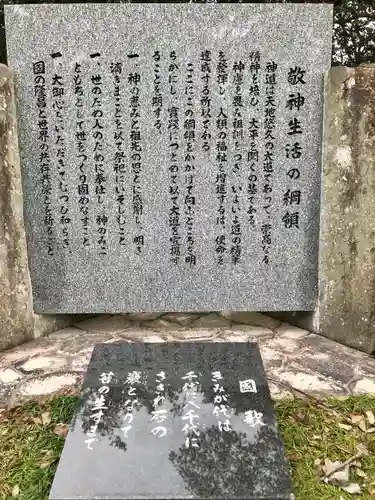 敬神生活の綱領
神道は天地悠久の大道であって、崇高なる
精神を培ひ、太平を開くの基である。
神慮を畏み祖訓をつぎ、いよいよ道の精華
を発揮し、人類の福祉を増進するは、使命を
達成する所以である。
ここにこの綱領をかかげて向ふところを明
らかにし、実践につとめて以て大道を宣揚す
ることを期する。
一、神の恵みと祖先の恩とに感謝し、明き
清きまことを以て祭祀にいそしむこと
一、世のため人のために奉仕し、神のみこ
ともちとして世をつくり固め成すこと
一、大御心をいただきてむつび和らぎ、
国の隆昌と世界の共存共栄とを祈ること
国歌
きみが代は
千代に八千代に
さざれ石の
巌となりて
苔の生すまで